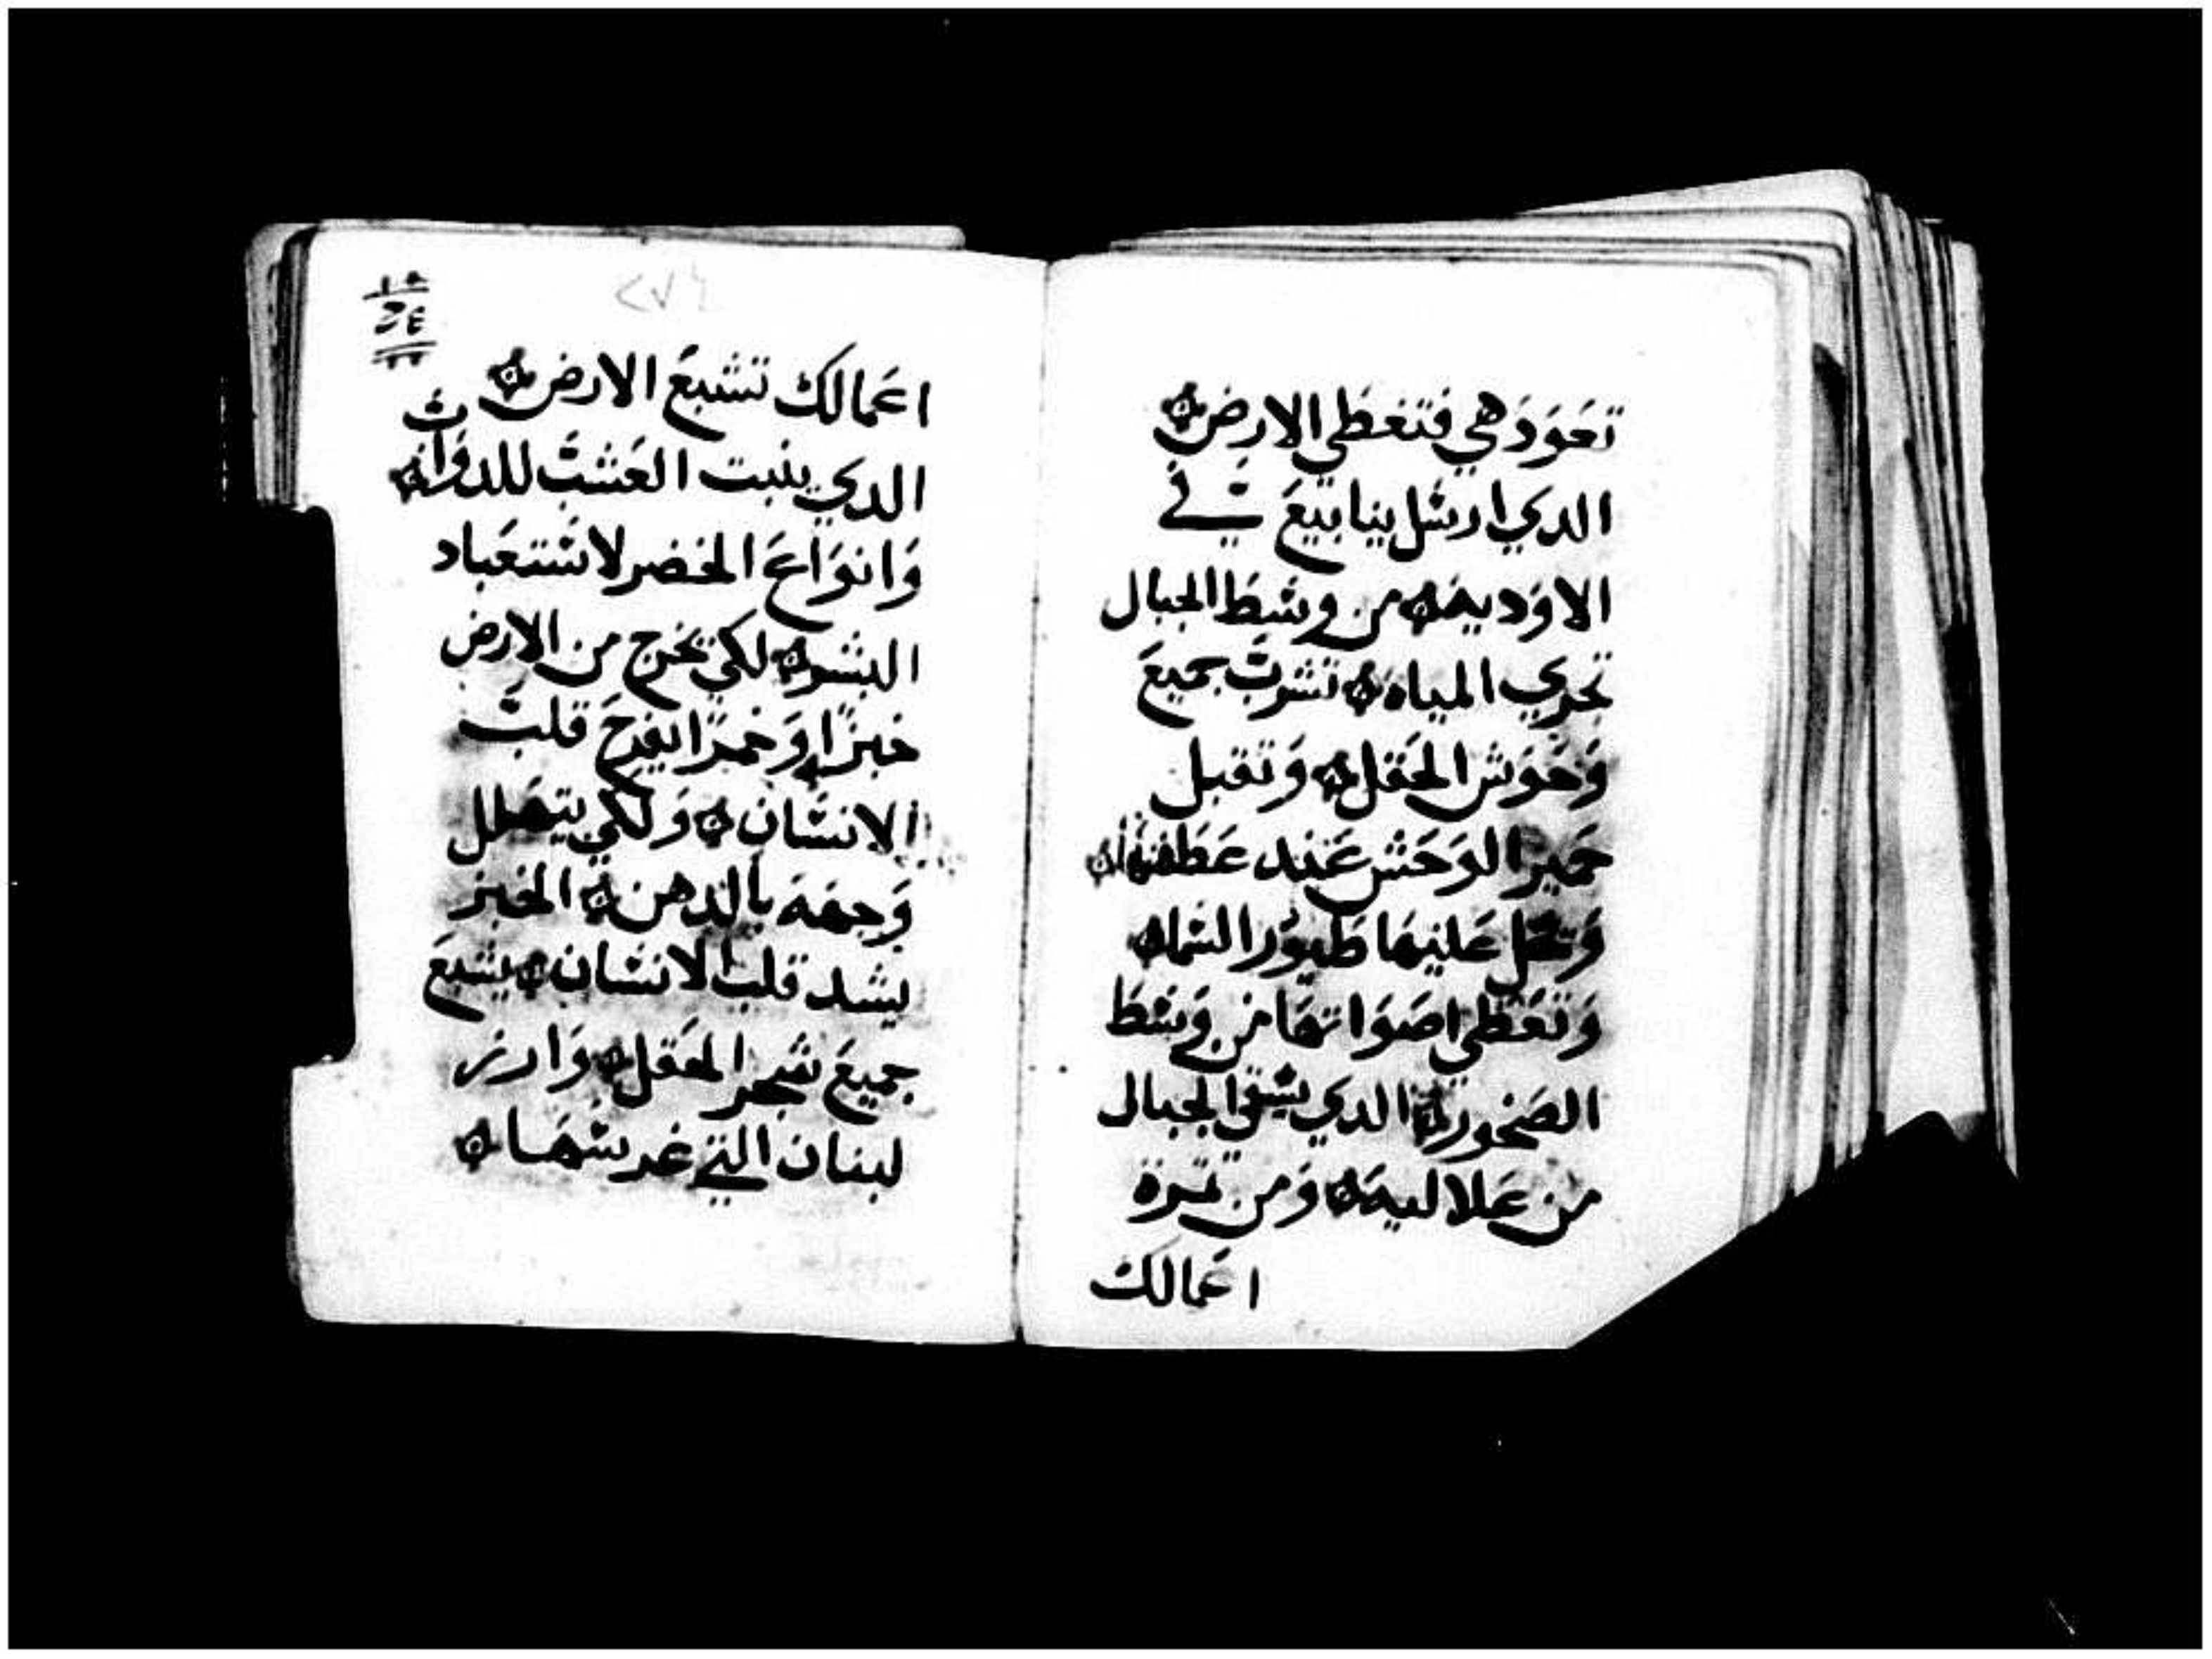 تعَوَدَ هي فتغطي الارض
الدي ارسل ينابيعَ في
الاوَديه من وسَط الجبال
تجري المياه تشربَ جميعَ
وَحَوَش الحَقل وَتقبل
حمير الوَحَش عَند عَطشها
وَتحَل عَليهَا طيوَر السَما
وَتعَطي اصَوَاتهَا من وَسَط
الصَخور الدي يسقي الجبال
من عَلاليه وَمن تمرة
اعَمالك
٢٧٤
اعَمالك تشبعَ الارض
الدي ينبت العَشبَ للدوَابَ
وَانوَاعَ الخضر لاستعَباد
البشر لكي تخرج من الارض
خبزًا وَخمرًا يفرحَ قلبَ
الانسَان وَلكي يتهَلل
وَجهَهَ بالدهن الخبز
يشد قلب الانسَان يشبعَ
جميعَ شجر الحَقل وَارز
لبنان التي غرسهَا